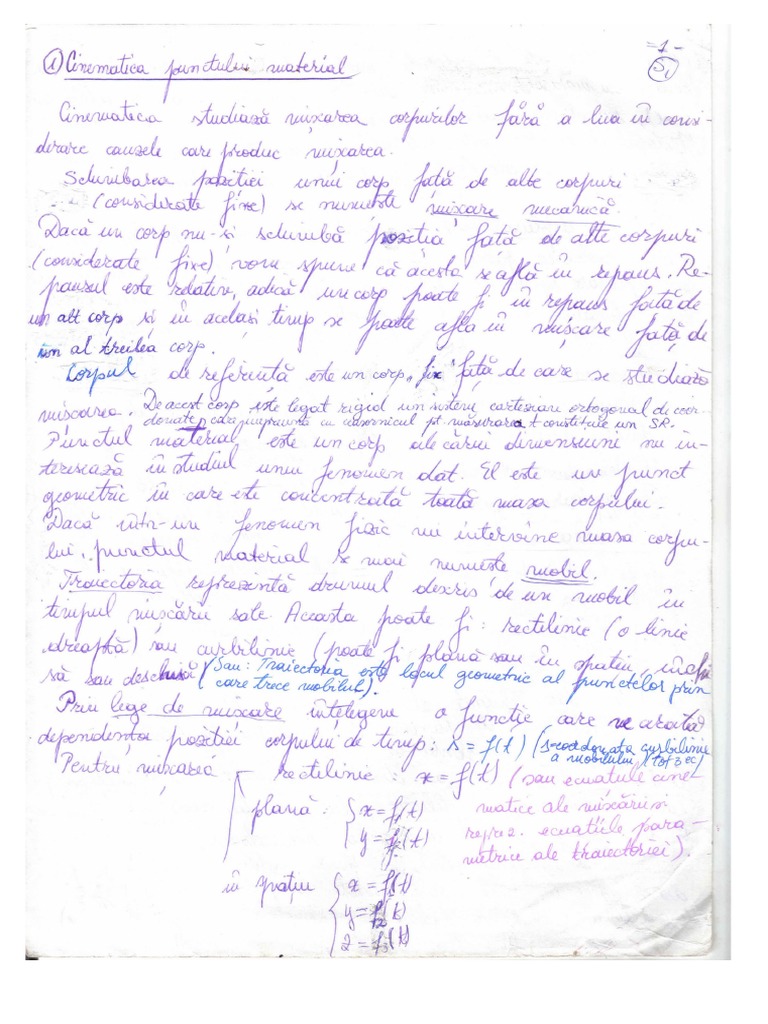 -1-
S1
① Cinematica punctului material
Cinematica studiază mișcarea corpurilor fără a lua în consi-
derare cauzele care produc mișcarea.
Schimbarea poziției unui corp față de alte corpuri
(considerate fixe) se numește mișcare mecanică.
Dacă un corp nu-și schimbă poziția față de alte corpuri
(considerate fixe) vom spune că acesta se află în repaus. Re-
pausul este relativ, adică un corp poate fi în repaus față de
un alt corp și în același timp se poate afla în mișcare față de
un al treilea corp.
Corpul de referință este un corp „fix" față de care se studiază
mișcarea. De acest corp este legat rigid un sistem cartezian ortogonal de coor-
donate, care împreună cu ceasornicul pt. măsurarea t constituie un SR.
Punctul material este un corp ale cărui dimensiuni nu in-
teresează în studiul unui fenomen dat. El este un punct
geometric în care este concentrată toată masa corpului.
Dacă într-un fenomen fizic nu intervine masa corpu-
lui, punctul material se mai numește mobil.
Traiectoria reprezintă drumul descris de un mobil în
timpul mișcării sale. Aceasta poate fi: rectilinie (o linie
dreaptă) sau curbilinie (poate fi plană sau în spațiu, închi-
să sau deschisă (Sau: Traiectoria este locul geometric al punctelor prin
care trece mobilul).
Prin lege de mișcare înțelegem o funcție care ne arată
dependența poziției corpului de timp: s = f(t) (s-coordonata curbilinie
a mobilului) (1 ec)
Pentru mișcarea rectilinie: x = f(t) (sau ecuațiile cine-
plană: { x = f₁(t) matice ale mișcării
y = f₂(t) reprez. ecuațiile para-
metrice ale traiectoriei).
în spațiu { x = f₁(t)
y = f₂(t)
z = f₃(t)